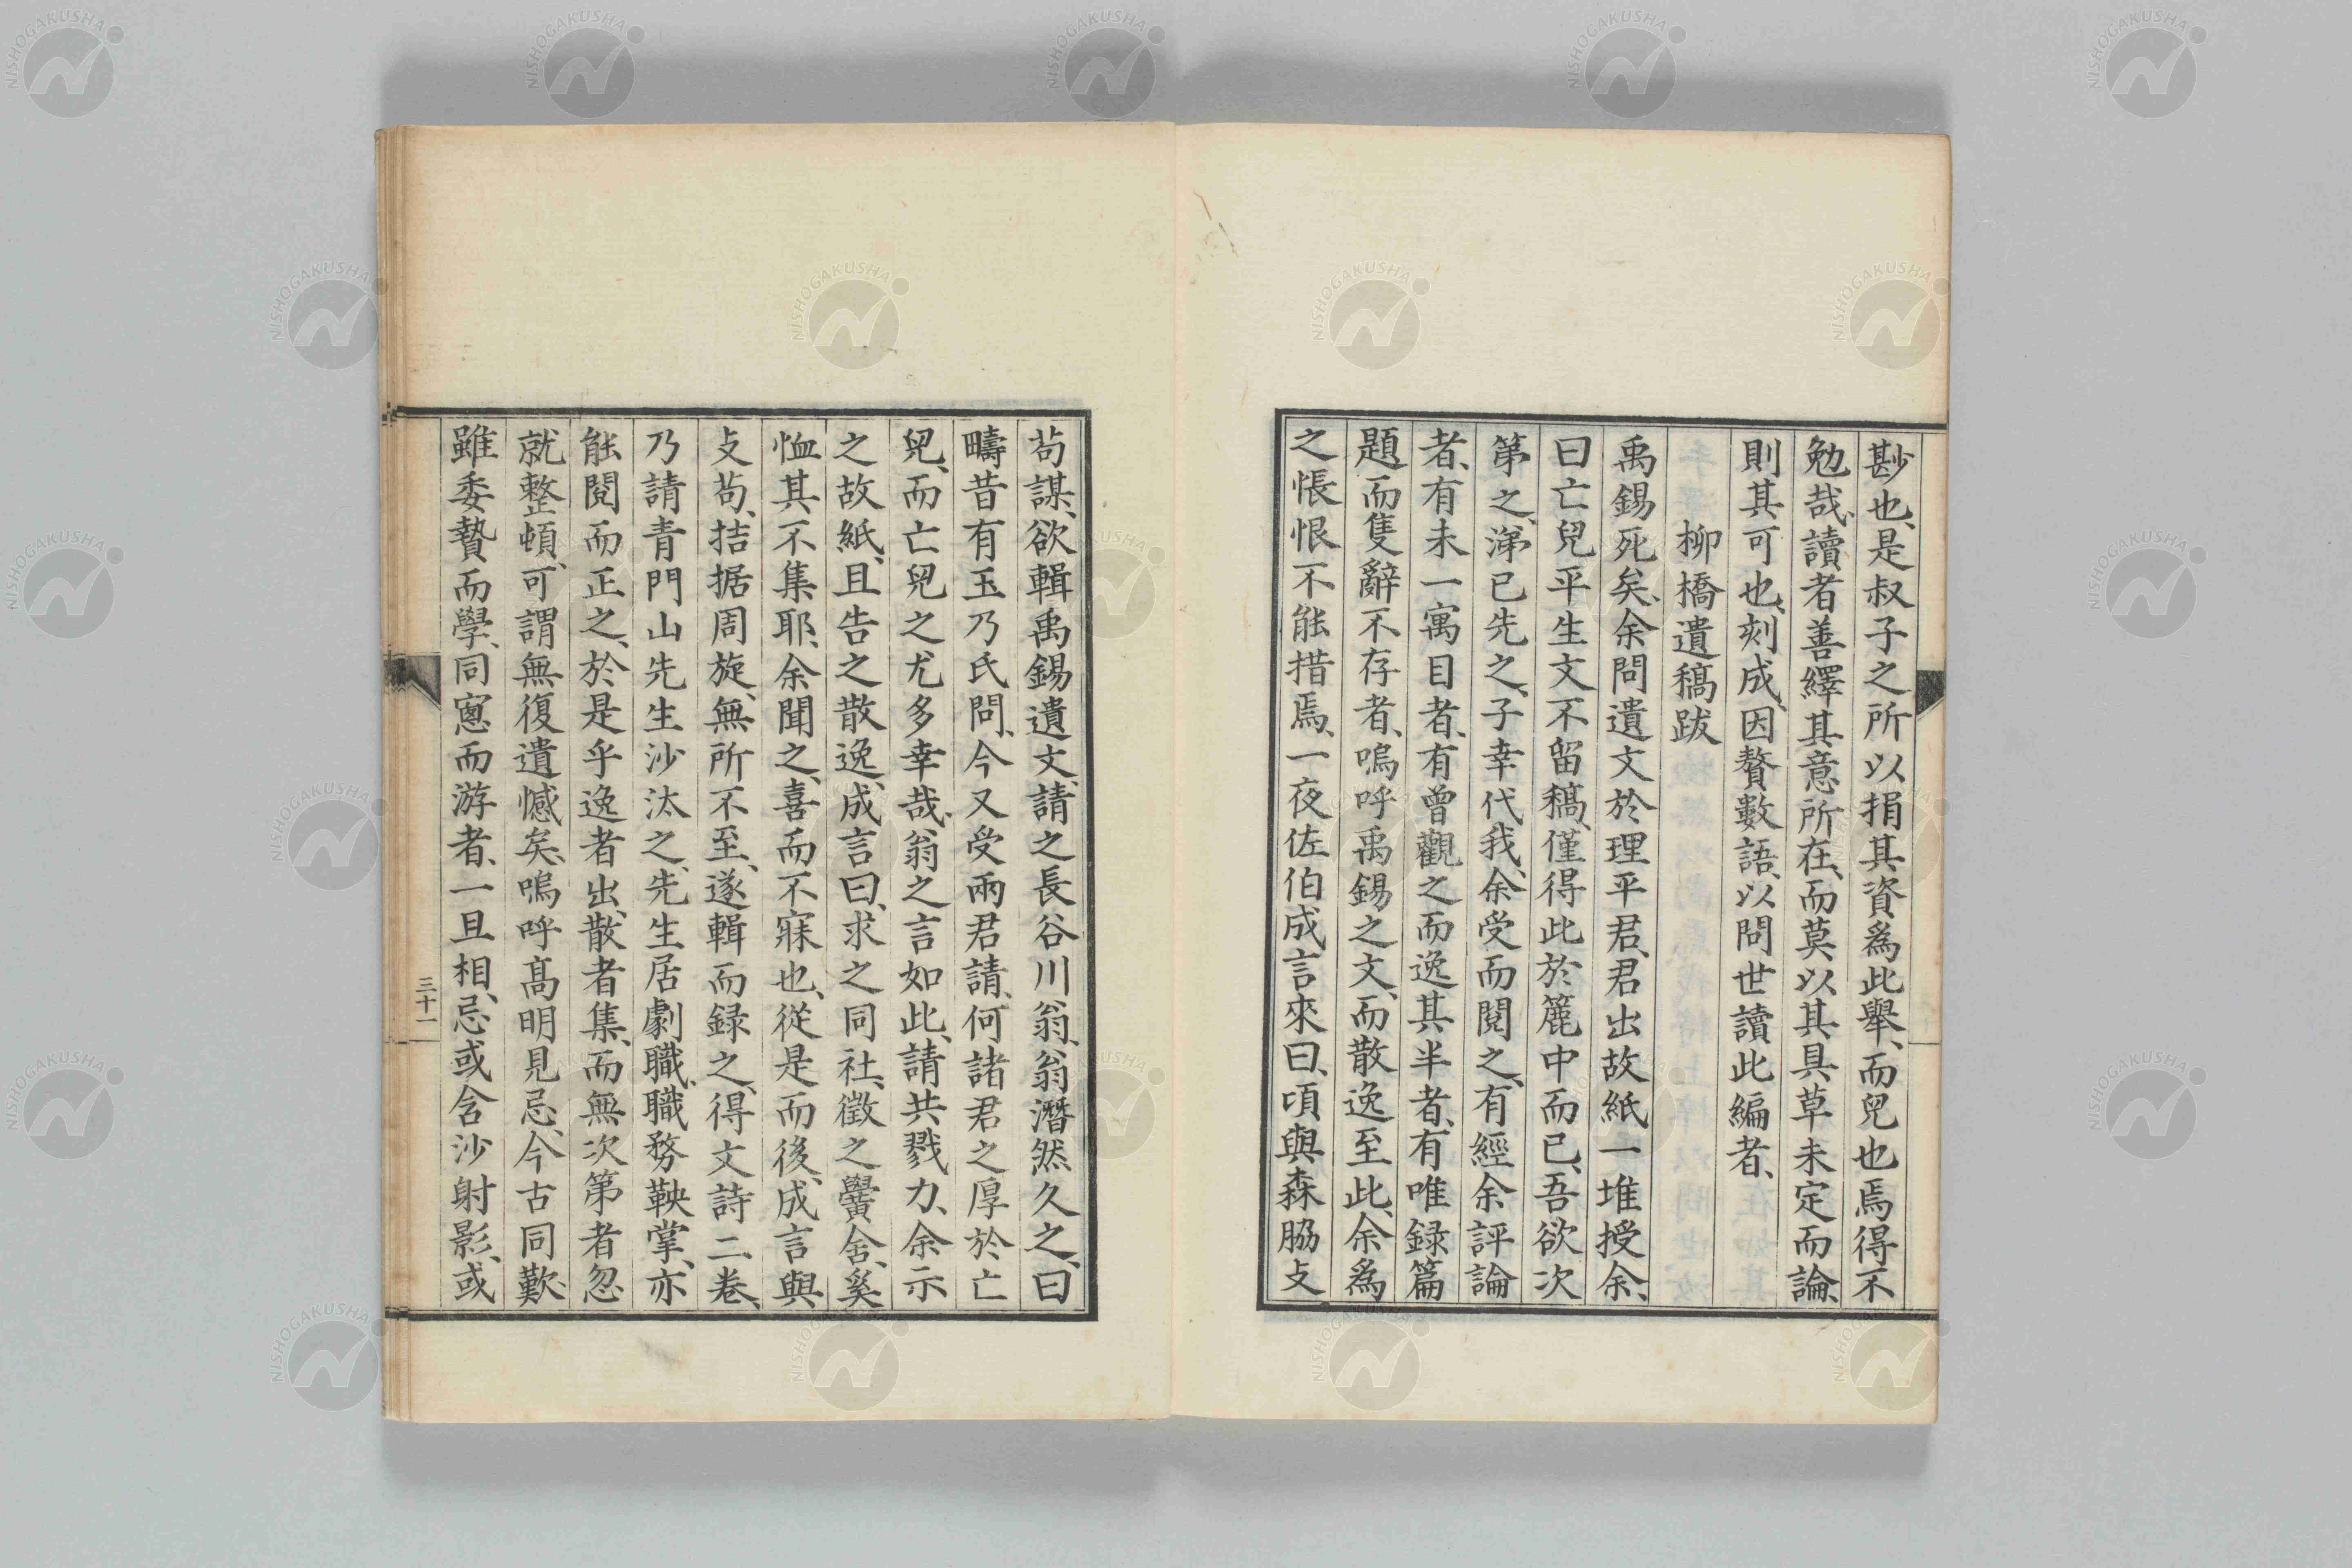 尠也、是叔子之所以捐其資爲此擧、而兒也焉得不
勉哉、讀者善繹其意所在、而莫以其具草未定而論、
則其可也、刻成、因贅數語、以問世讀此編者、
柳橋遺稿跋
禹錫死矣、余問遺文於理平君、君出故紙一堆授余、
曰亡兒平生文不留稿、僅得此於簏中而已、吾欲次
第之、涕已先之、子幸代我、余受而閱之、有經余評論
者、有未一寓目者、有曾觀之而逸其半者、有唯録篇
題而隻辭不存者、嗚呼禹錫之文、而散逸至此、余爲
之悵恨不能措焉、一夜佐伯成言來曰、頃與森脇攴
茍謀、欲輯禹錫遺文、請之長谷川翁、翁潸然久之、曰
疇昔有玉乃氏問、今又受兩君請、何諸君之厚於亡
兒、而亡兒之尤多幸哉、翁之言如此、請共戮力、余示
之故紙、且告之散逸、成言曰、求之同社、徵之黌舍、奚
恤其不集耶、余聞之、喜而不寐也、從是而後、成言與
攴茍、拮据周旋、無所不至、遂輯而録之、得文詩二卷、
乃請青門山先生沙汰之、先生居劇職、職務鞅掌、亦
能閱而正之、於是乎逸者出、散者集、而無次第者忽
就整頓、可謂無復遺憾矣、嗚呼高明見忌、今古同歎、
雖委贄而學、同窻而游者、一旦相忌、或含沙射影、或
三十一
NISHOGAKUSHA